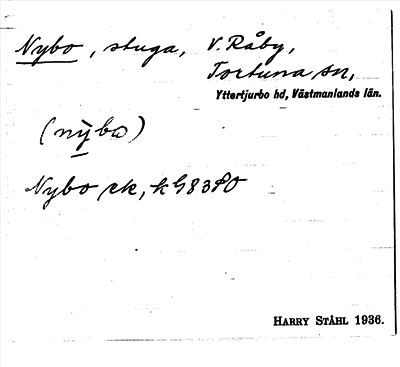 Nybo, stuga, V. Råby,
Tortuna sn,
Yttertjurbo hd, Västmanlands län.
(nỳbo)
Nybo ek,
HARRY STÅHL 1936.